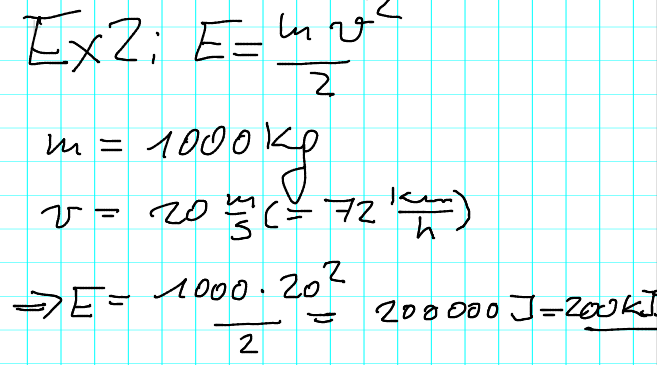 Ex2: E = mv²/2
m = 1000 kg
v = 20 m/s (= 72 km/h)
⇒ E = 1000 · 20²/2 = 200000 J = 200 kJ